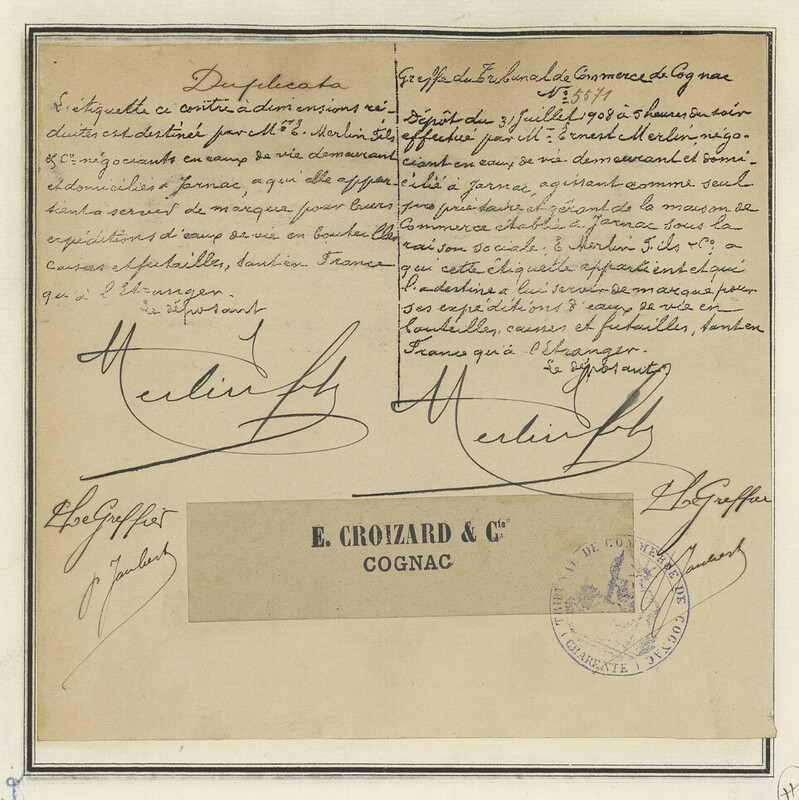 Duplicata
L'étiquette ci contre à dimensions ré-
duites est destiné par Mrs E. Merlin Fils
& Cie négociants en eaux de vie demeurant
et domiciliés à Jarnac, a qui elle appar-
tient a servir de marque pour leurs
expéditions d'eaux de vie en bouteilles
caisses et futailles, tant en France
qu'à l'Etranger.
Le déposant
Merlin fils
Le Greffier
Greffe du Tribunal de Commerce de Cognac
No 5571
Dépôt du 31 Juillet 1908 à 5 heures du soir
effectué par Mr Ernest Merlin, négo-
ciant en eaux de vie demeurant et domi-
cilié à Jarnac, agissant comme seul
propriétaire et gérant de la maison de
Commerce établie à Jarnac sous la
raison sociale: E Merlin Fils & Co a
qui cette étiquette appartient et qui
l'a destine a lui servir de marque pour
ses expéditions d'eaux de vie en
bouteilles, caisses et futailles, tant en
France qu'à l'Etranger.
Le déposant
Merlin fils
Le Greffier
E. CROIZARD & Cie
COGNAC
TRIBUNAL DE COMMERCE DE COGNAC
(CHARENTE)